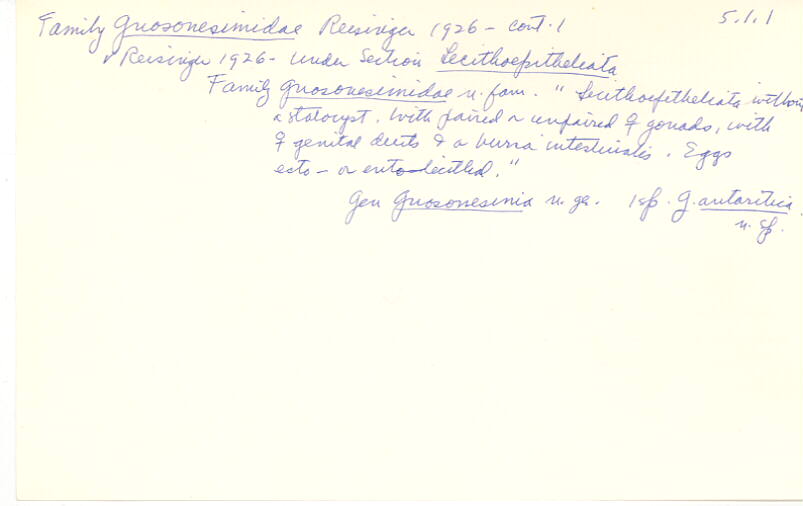 Family Gnosonesimidae Reisinger 1926 - cont. 1
5.1.1
✓ Reisinger 1926 - under Section Lecithoepitheliata
Family Gnosonesimidae n. fam. "Lecithoepitheliata without
a statocyst. With paired or unpaired ♀ gonads, with
♀ genital ducts & a bursa intestinalis. Eggs
ecto - or entolecithal."
Gen Gnosonesima n. ge. 1 sp. G. antarctica
n. sp.